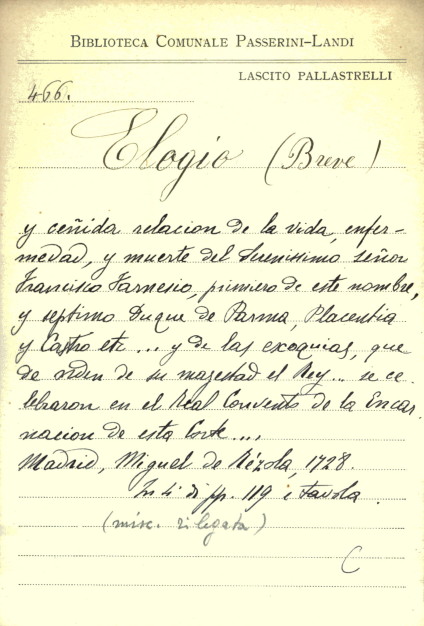 BIBLIOTECA COMUNALE PASSERINI-LANDI
LASCITO PALLASTRELLI
466.
Elogio (Breve)
y ceñida relacion de la vida, enfer-
medad, y muerte del Serenissimo señor
Francisco Farnesio, primero de este nombre,
y septimo Duque de Parma, Placentia
y Castro etc ... y de las exequias, que
de orden de su magestad el Rey ... se ce
lebraron en el Real Convento de la Encar
nacion de esta Corte ....
Madrid, Miguel de Rézola, 1728.
In 4° di pp. 119 e tavola.
(misc. rilegata)
C